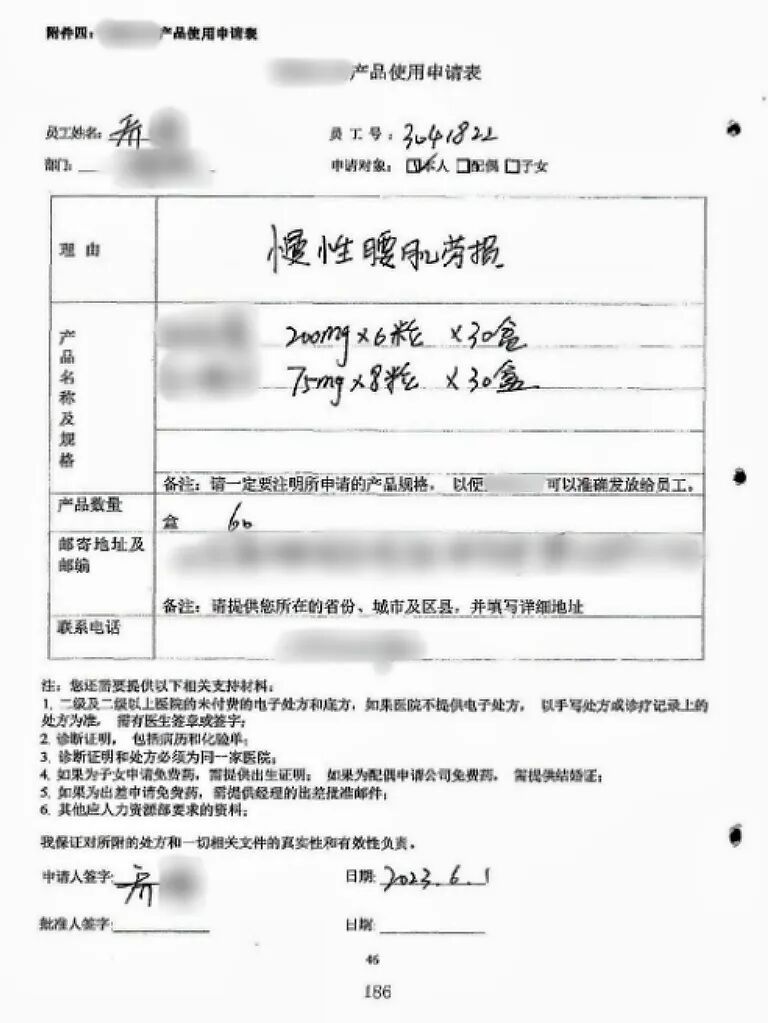 附件四： 产品使用申请表
产品使用申请表
员工姓名： 乔 员 工 号：3041822
部门： 申请对象： 本人 配偶 子女
理 由 慢性腰肌劳损
产品名称及规格
200mg×6粒 ×30盒
75mg×8粒 ×30盒
备注：请一定要注明所申请的产品规格， 以便 可以准确发放给员工。
产品数量 盒 60
邮寄地址及
邮输
备注：请提供您所在的省份、城市及区县，并填写详细地址
联系电话
注：您还需要提供以下相关支持材料：
1. 二级及二级以上医院的未付费的电子处方和底方，如果医院不提供电子处方， 以手写处方或诊疗记录上的
处方为准， 需有医生签章或签字；
2. 诊断证明， 包括病历和化验单；
3. 诊断证明和处方必须为同一家医院；
4. 如果为子女申请免费药，需提供出生证明； 如果为配偶申请公司免费药， 需提供结婚证；
5. 如果为出差申请免费药，需提供经理的出差批准邮件；
6. 其他应人力资源部要求的资料；
我保证对所附的处方和一切相关文件的真实性和有效性负责。
申请人签字： 乔 日期: 2023.6.1
批准人签字: 日期:
46
186